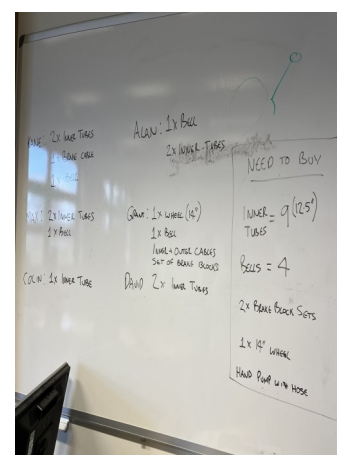 2x INNER TUBES
1x BRAKE CABLE
1x BELL
2x INNER TUBES
1x BELL
COLIN: 1x INNER TUBE
ALAN: 1x BELL
2x INNER-TUBES
GRANT: 1x WHEEL (14")
1x BELL
INNER + OUTER CABLES
SET OF BRAKE BLOCKS
DAVID 2x INNER TUBES
NEED TO BUY
INNER TUBES = 9 (12.5")
BELLS = 4
2x BRAKE BLOCK SETS
1x 14" WHEEL
HAND PUMP WITH HOSE